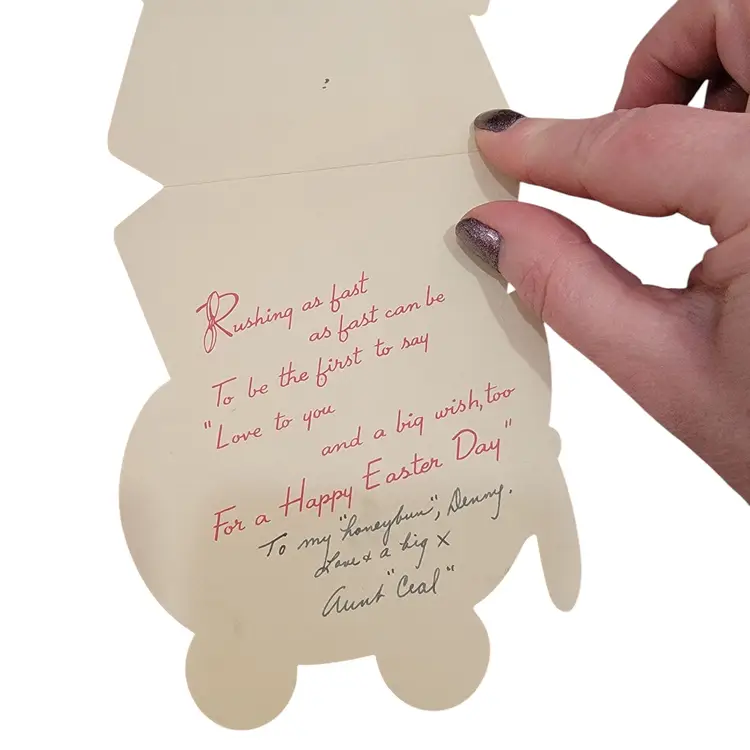 Rushing as fast
as fast can be
To be the first to say
"Love to you
and a big wish, too
For a Happy Easter Day"
To my "honeybun", Denny.
Love & a big X
Aunt "Ceal"